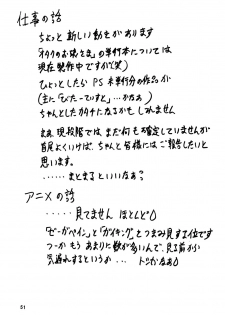 仕事の話
ちょっと新しい動きがあります
「オタクのお嬢さま」の単行本については
現在製作中ですが(笑)
ひょっとしたら PS 未単行分の作品が
(主に「ぴたーていすと」…かなぁ)
ちゃんとしたカタチになるかもしれません
まぁ、現段階では まだ何も確定していませんが
首尾よくいけば、ちゃんと皆様にはご報告したいと
思います。
……まとまるといいなぁ?
アニメの話
……見てません ほとんど
「ゼーガペイン」と「ガイキング」とつまみ見する位です
つーか もう あまりに数が多いんで、見る前から
気遅れするというか…
51